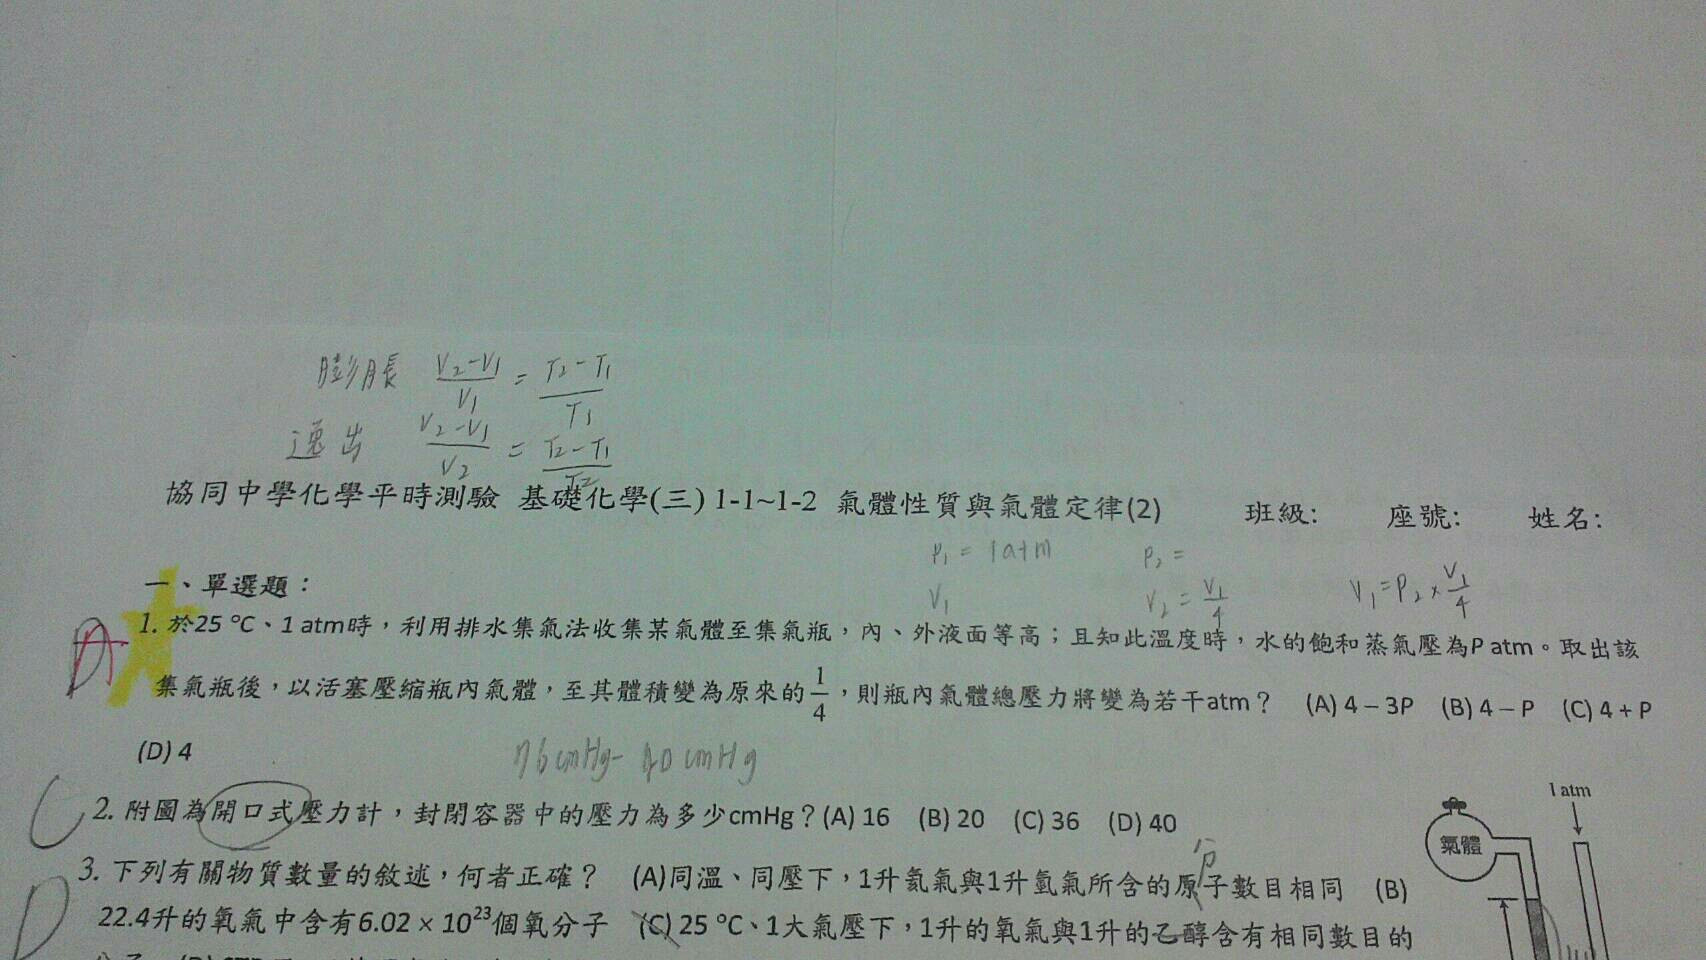 膨脹 V₂-V₁/V₁ = T₂-T₁/T₁
逸出 V₂-V₁/V₂ = T₂-T₁/T₂
協同中學化學平時測驗 基礎化學(三) 1-1~1-2 氣體性質與氣體定律(2) 班級: 座號: 姓名:
P₁ = 1atm P₂ =
一、單選題：
V₁ V₂ = V₁/4 V₁=P₂×V₁/4
A
1. 於25 °C、1 atm時，利用排水集氣法收集某氣體至集氣瓶，內、外液面等高；且知此溫度時，水的飽和蒸氣壓為P atm。取出該
集氣瓶後，以活塞壓縮瓶內氣體，至其體積變為原來的1/4，則瓶內氣體總壓力將變為若干atm？ (A) 4 – 3P (B) 4 – P (C) 4 + P
(D) 4
76cmHg- 40cmHg
1 atm
C 2. 附圖為開口式壓力計，封閉容器中的壓力為多少cmHg？(A) 16 (B) 20 (C) 36 (D) 40
氣體
分
D 3. 下列有關物質數量的敘述，何者正確？ (A)同溫、同壓下，1升氦氣與1升氫氣所含的原子數目相同 (B)
22.4升的氧氣中含有6.02 × 10²³個氧分子 (C) 25 °C、1大氣壓下，1升的氧氣與1升的乙醇含有相同數目的